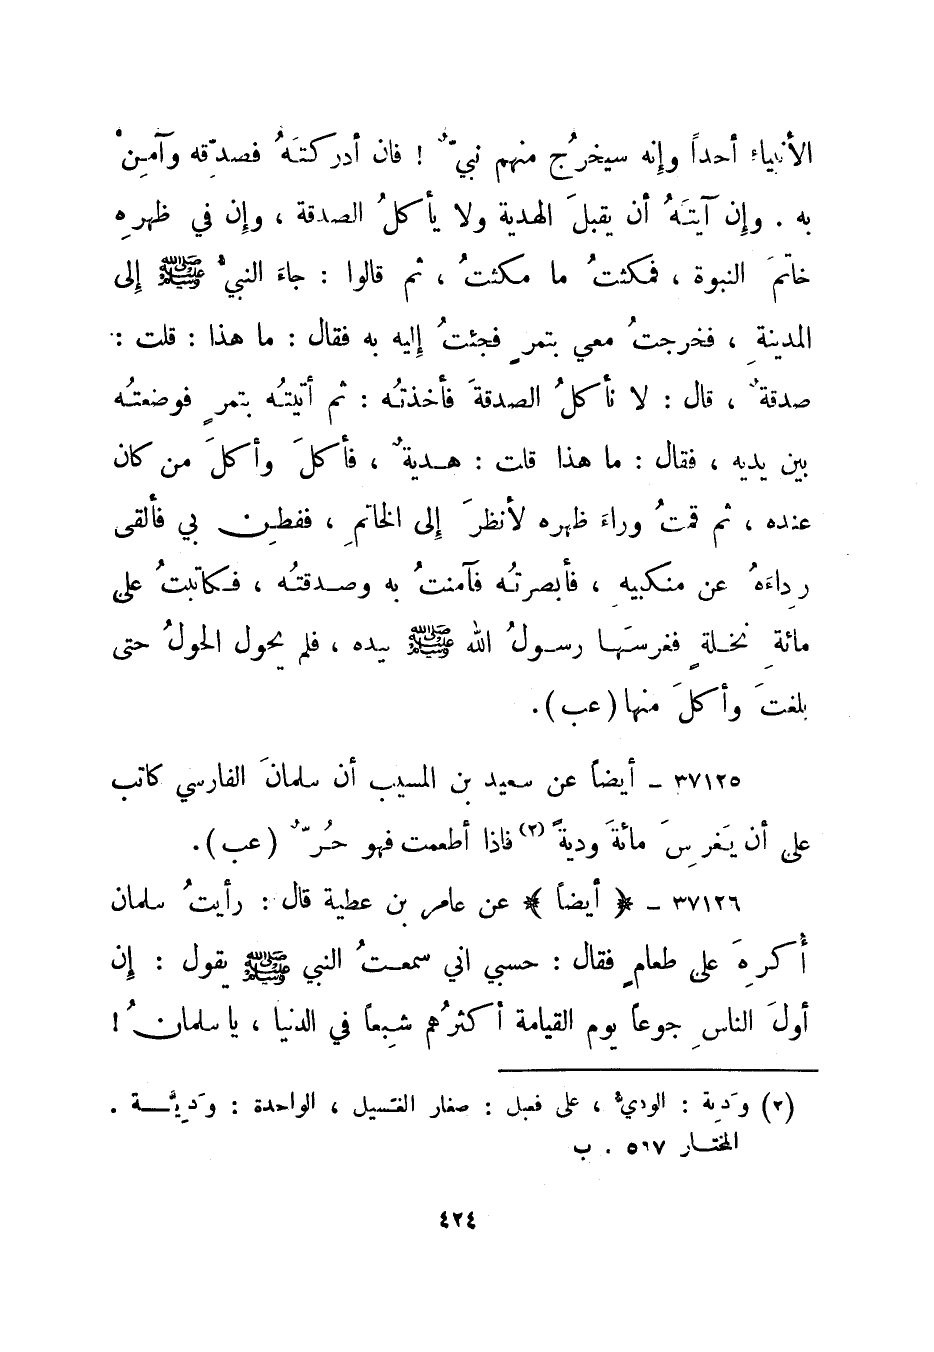 الأنبياء أحداً وإنه سيخرُج منهم نبيٌّ ! فان أدركتَهُ فصدِّقه وآمنْ
به . وإن آيتَهُ أن يقبلَ الهدية ولا يأكلُ الصدقة ، وإن في ظهرِه
خاتمَ النبوة ، فمكثتُ ما مكثتُ ، ثم قالوا : جاءَ النبيُّ ﷺ إلى
المدينةِ ، فخرجتُ معي بتمرٍ فجئتُ إليه به فقال : ما هذا : قلت :
صدقةٌ ، قال : لا نأكلُ الصدقةَ فأخذتُه : ثم أتيتُه بتمرٍ فوضعتُه
بين يديه ، فقال : ما هذا قلت : هديةٌ ، فأكلَ وأكلَ من كان
عنده ، ثم قمتُ وراءَ ظهره لأنظرَ إلى الخاتمِ ، ففطِن بي فألقى
رداءَهُ عن منكبيهِ ، فأبصرتُه فآمنتُ به وصدقتُه ، فكاتبتُ على
مائةِ نخلةٍ فغرسَها رسولُ الله ﷺ بيده ، فلم يحول الحولُ حتى
بلغتَ وأكلَ منها (عب) .
٣٧١٢٥ ـ أيضاً عن سعيد بن المسيب أن سلمانَ الفارسي كاتب
على أن يَغرِسَ مائةَ وديةً (٢) فاذا أطعمت فهو حُرٌّ (عب) .
٣٧١٢٦ ـ ﴿ أيضاً ﴾ عن عامر بن عطية قال : رأيتُ سلمان
أُكرِهَ على طعامٍ فقال : حسبي اني سمعتُ النبي ﷺ يقول : إن
أولَ الناسِ جوعاً يوم القيامة أكثرُهم شبِعاً في الدنيا ، يا سلمانُ !
(٢) وَدية : الوديُّ ، على فعيل : صغار الفسيل ، الواحدة : وَدِيَّة .
المختار ٥٦٧ . ب
٤٢٤